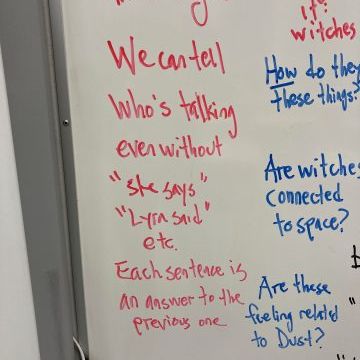 We can tell
Who's talking
even without
"she says"
"Lyra said"
etc.
Each sentence is
an answer to the
previous one
it?
witches
How do they
these things?
Are witches
connected
to space?
Are these
feeling related
to Dust?